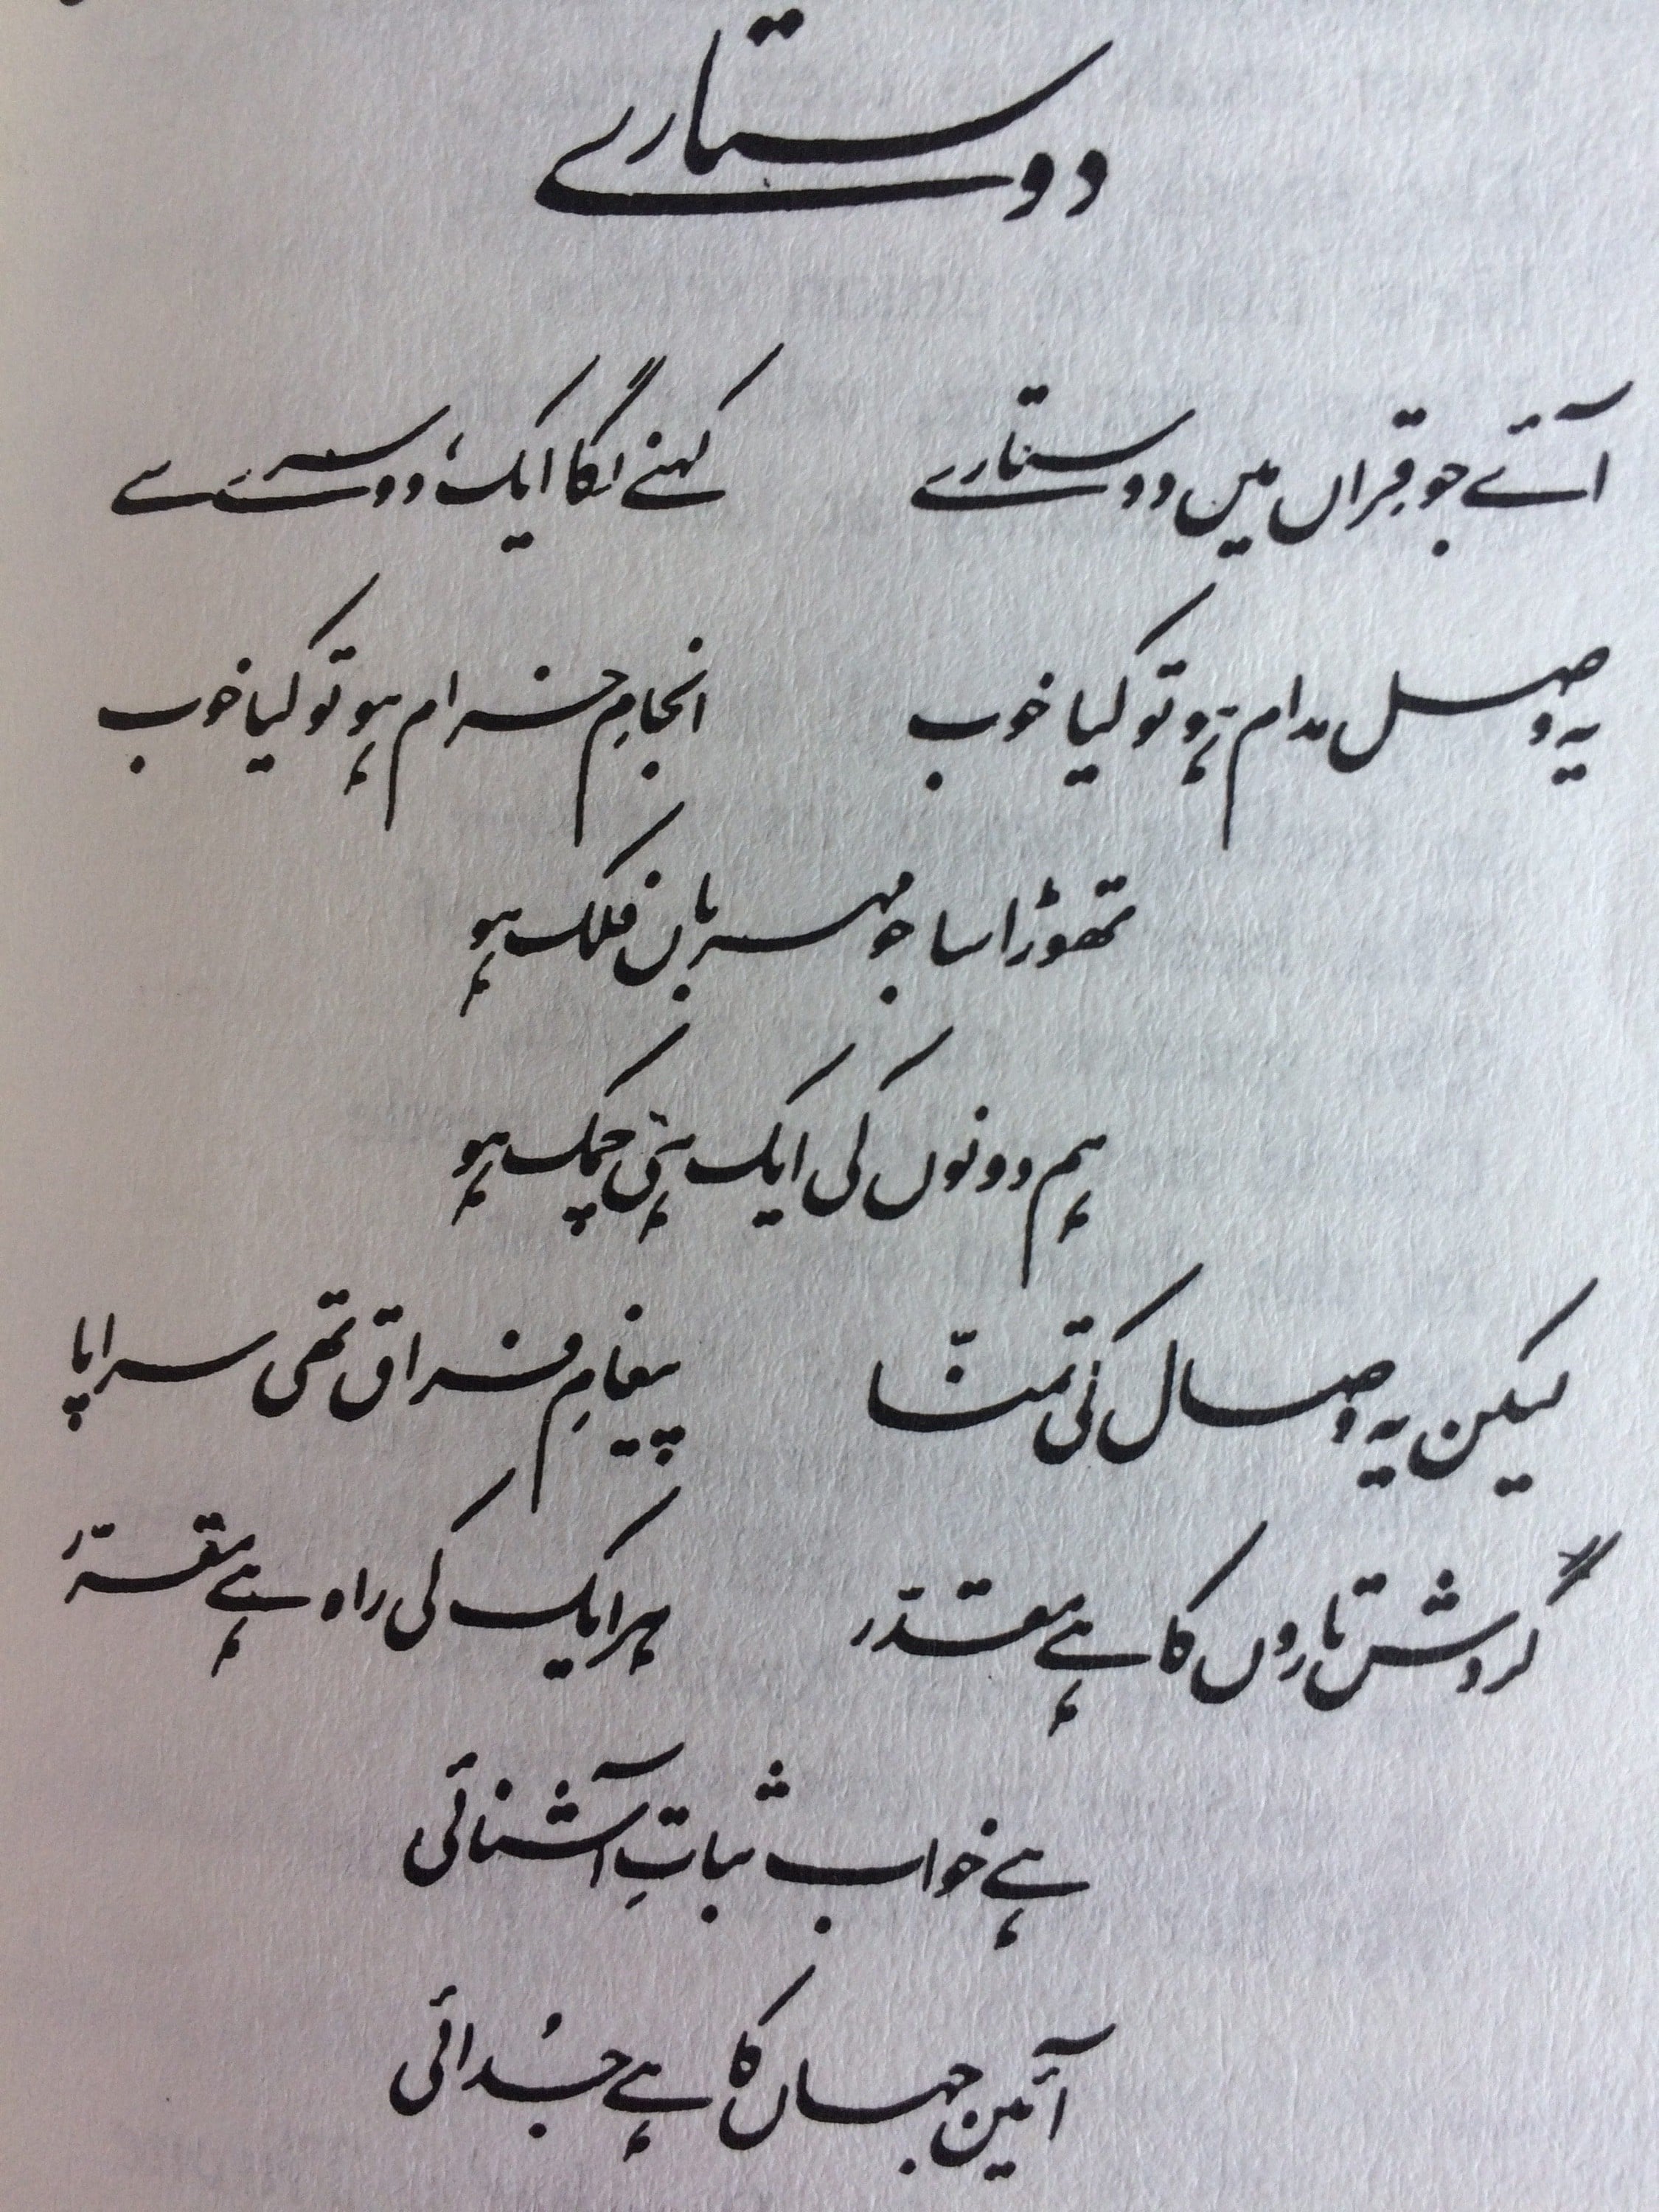 دو ستارے
آئے جو قِراں میں دو ستارے کہنے لگا ایک، دوسرے سے
یہ وصل مدام ہو تو کیا خوب انجامِ خرام ہو تو کیا خوب
تھوڑا سا جو مہرباں فلک ہو
ہم دونوں کی ایک ہی چمک ہو
لیکن یہ وصال کی تمنّا پیغامِ فراق تھی سراپا
گردش تاروں کا ہے مقدّر ہر ایک کی راہ ہے مقرّر
ہے خواب ثباتِ آشنائی
آئین جہاں کا ہے جُدائی